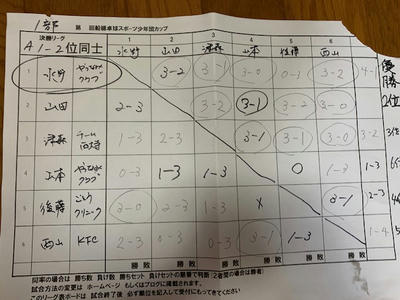 1部 第 回船橋卓球スポーツ少年団カップ
決勝リーグ 1 2 3 4 5 6
A 1-2位同士 水野 山田 津森 山本 後藤 西山
1 水野 やってねクラブ 3-2 3-1 3-0 0-1 3-2 4-1 優勝
2 山田 2-3 3-2 3-1 3-2 3-0 2位
3 津森 チーム 1-3 2-3 3-1 3-1 3-0 3位
4 山本 クラブ 0-3 1-3 1-3 0 1-3
5 後藤 クリニック 3-0 2-3 1-3 x 3-1 2-3
6 西山 KFC 2-3 0-3 0-3 3-1 1-3 1-4
勝敗 勝敗 勝敗 勝敗 勝敗 勝敗
同率の場合は 勝ち数 負け数 勝ちセット 負けセットの順番で判断(2者間の場合は勝者)
試合方法の変更は ホームページ もしくはブログに掲載されます。
このリーグ表ボードは 試合終了後 必ず順位を記入して受付にもってきてください